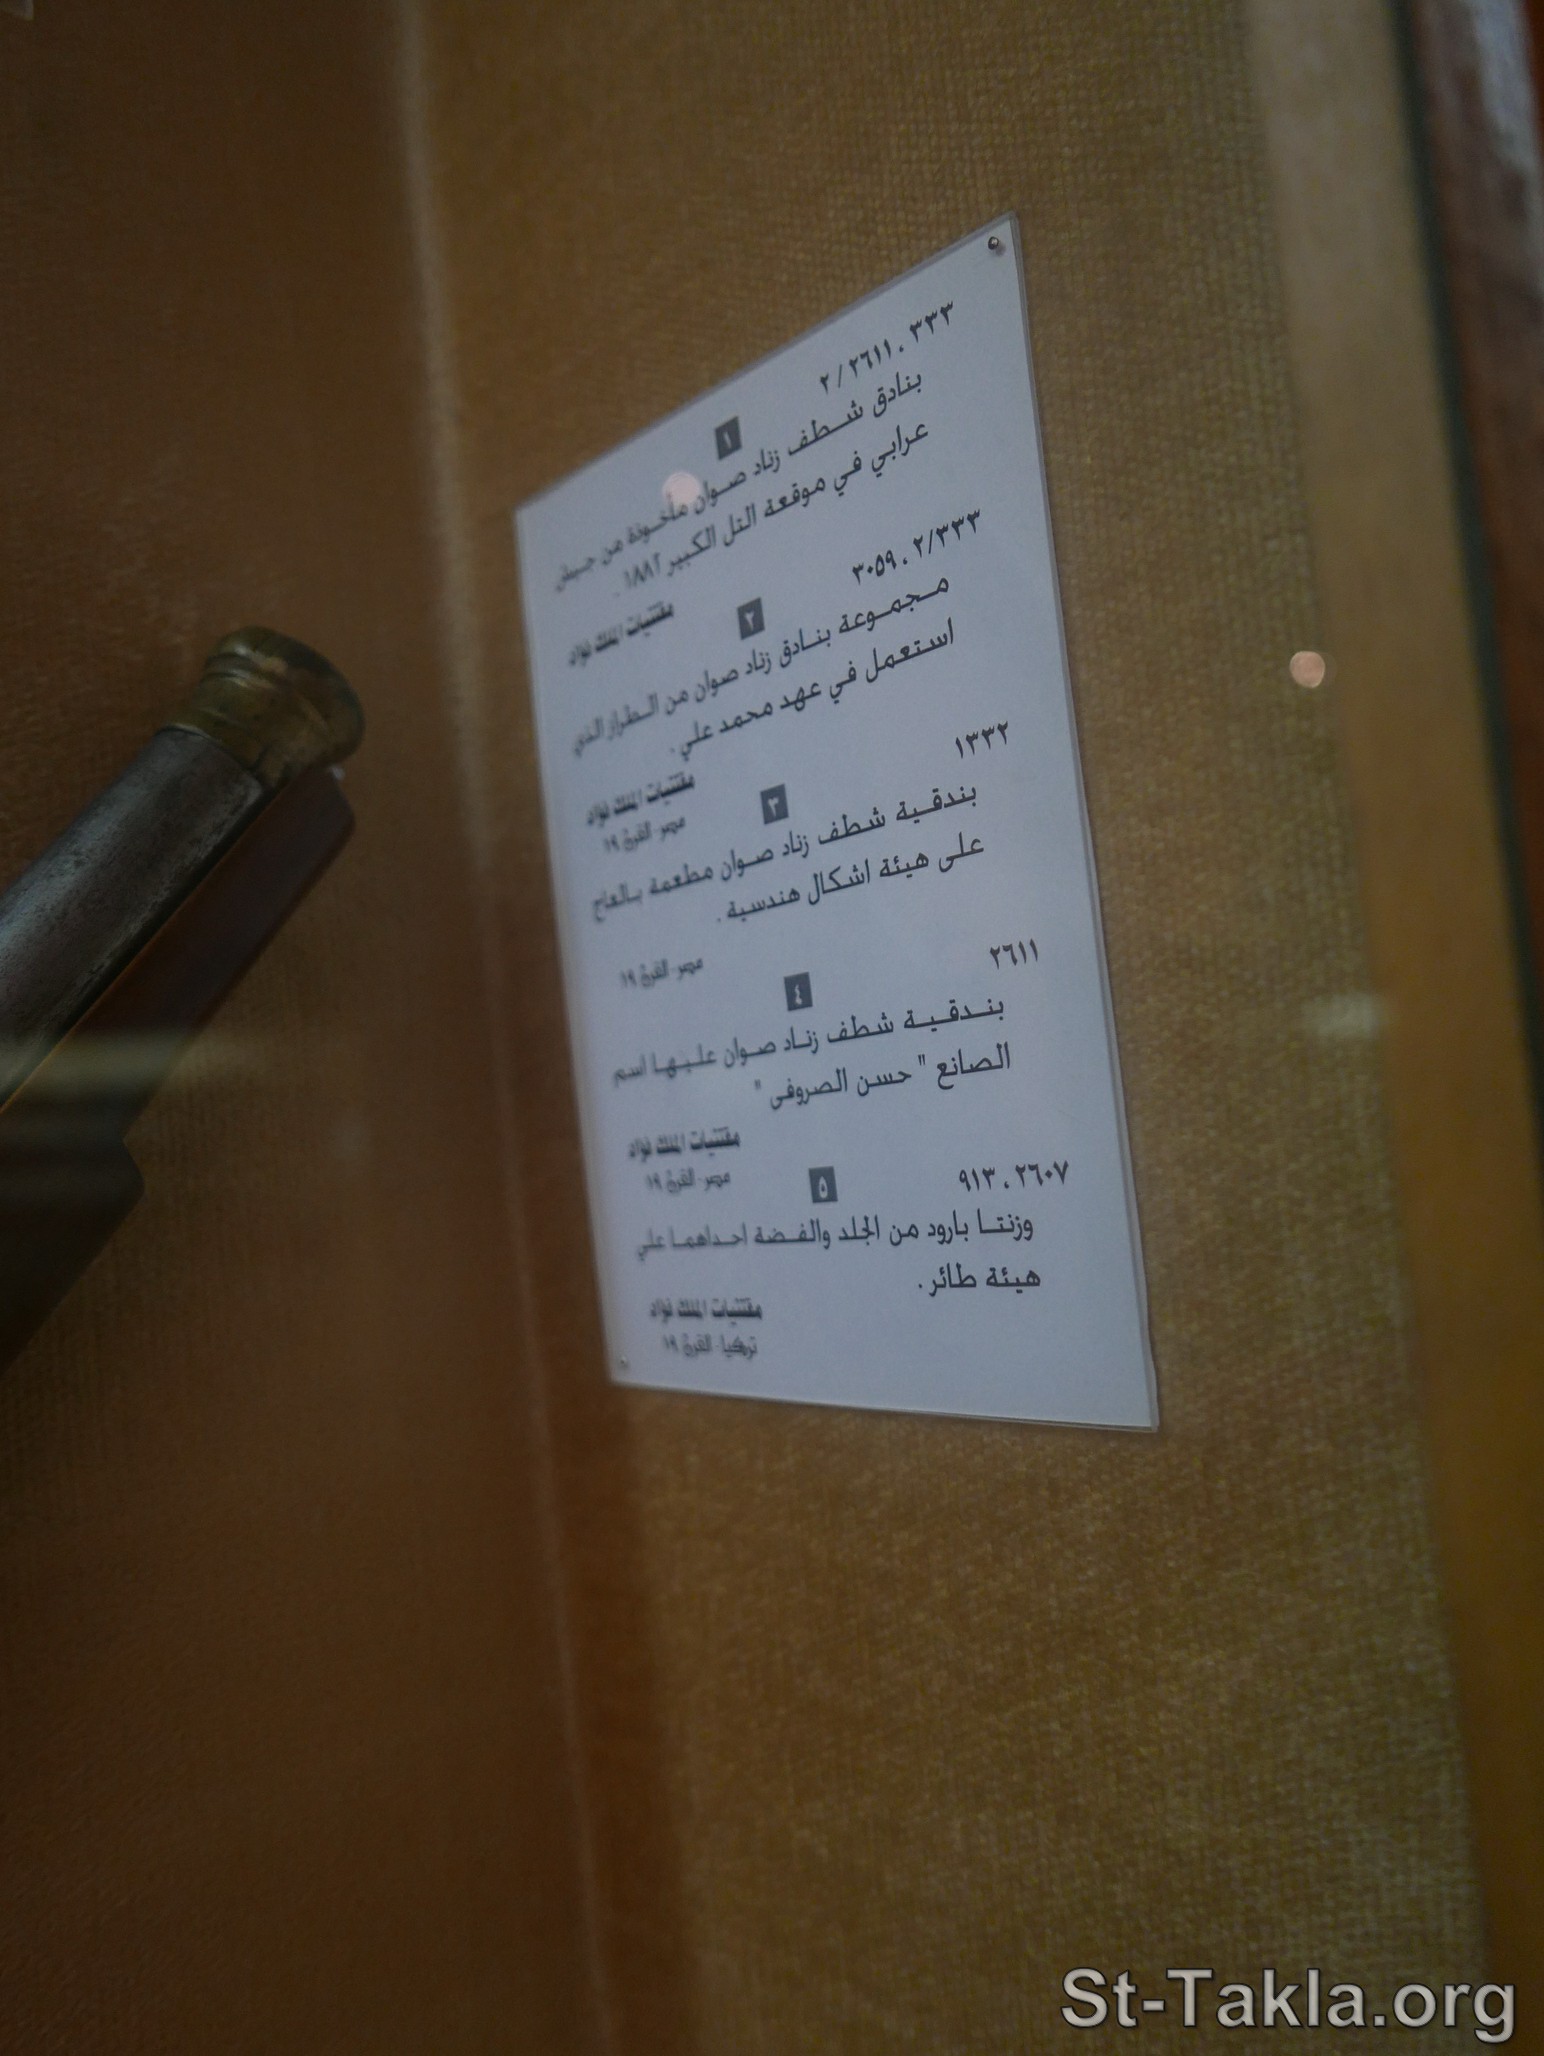 ٣٣٣ ، ٢٦١١ / ٢
١
بنادق شطف زناد صوان مأخوذة من جيش
عرابي في موقعة التل الكبير ١٨٨٢ .
مقتنيات الملك فؤاد
٢/٣٣٣ ، ٣٠٥٩
٢
مجموعة بنادق زناد صوان من الطراز الذي
استعمل في عهد محمد علي .
مقتنيات الملك فؤاد
مصر - القرن ١٩
١٣٣٢
٣
بندقية شطف زناد صوان مطعمة بالعاج
على هيئة اشكال هندسية .
مصر - القرن ١٩
٢٦١١
٤
بندقية شطف زناد صوان عليها اسم
الصانع " حسن الصروفى "
مقتنيات الملك فؤاد
مصر - القرن ١٩
٢٦٠٧ ، ٩١٣
٥
وزنتا بارود من الجلد والفضة احداهما علي
هيئة طائر .
مقتنيات الملك فؤاد
تركيا - القرن ١٩
St-Takla.org